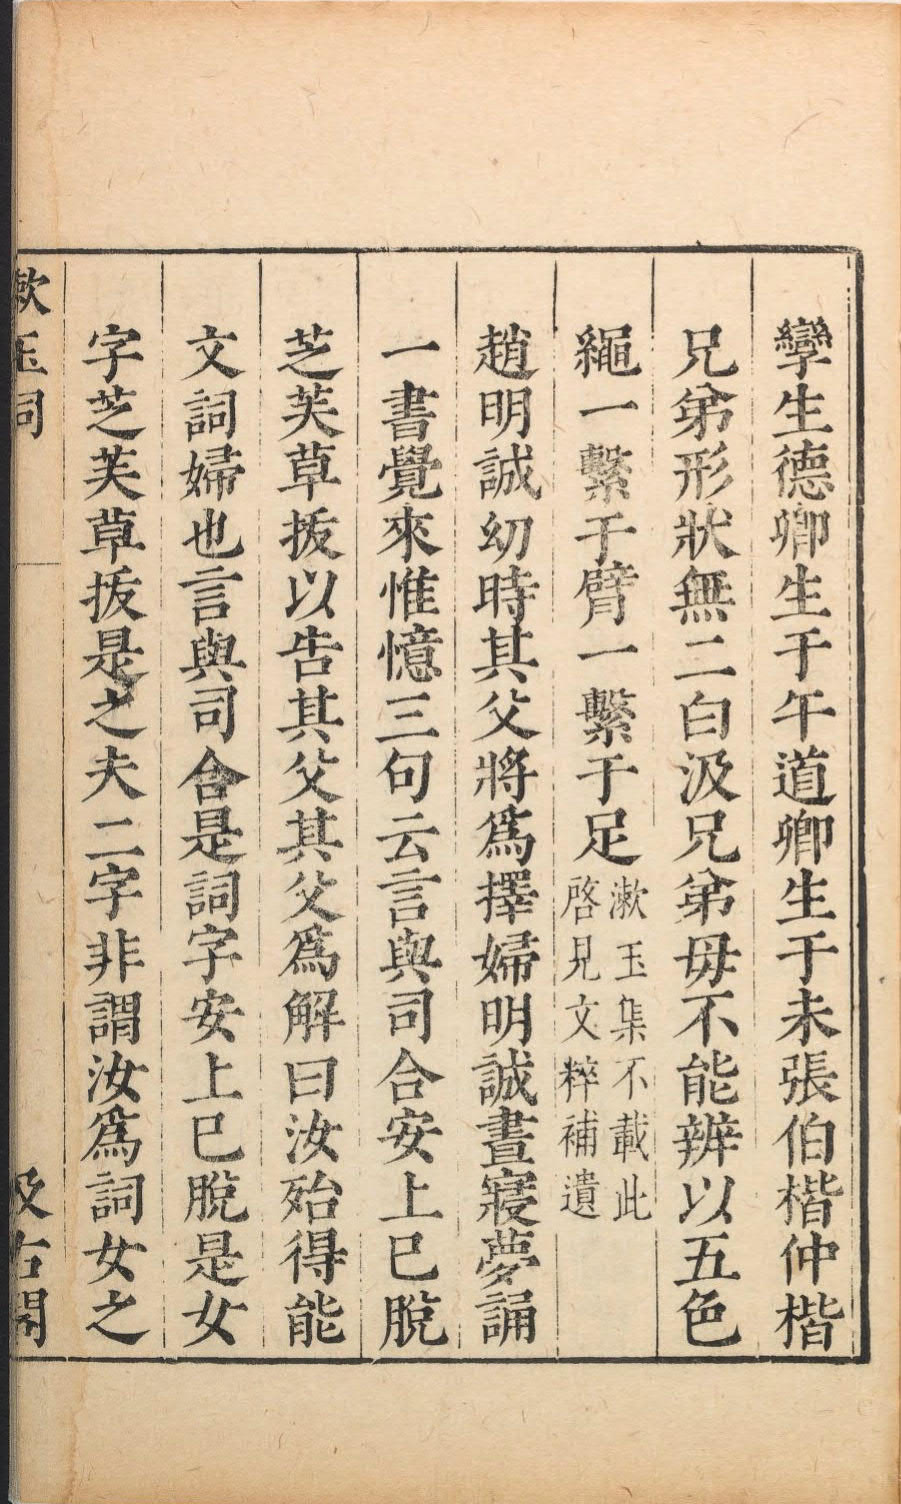 孿生德卿生于午道卿生于未張伯楷仲楷
兄弟形狀無二白汲兄弟毋不能辨以五色
繩一繫于臂一繫于足漱玉集不載此
啓見文粹補遺
趙明誠幼時其父將爲擇婦明誠晝寢夢誦
一書覺來惟憶三句云言與司合安上已脫
芝芙草拔以告其父其父爲解曰汝殆得能
文詞婦也言與司合是詞字安上已脫是女
字芝芙草拔是之夫二字非謂汝爲詞女之
漱玉詞
汲古閣